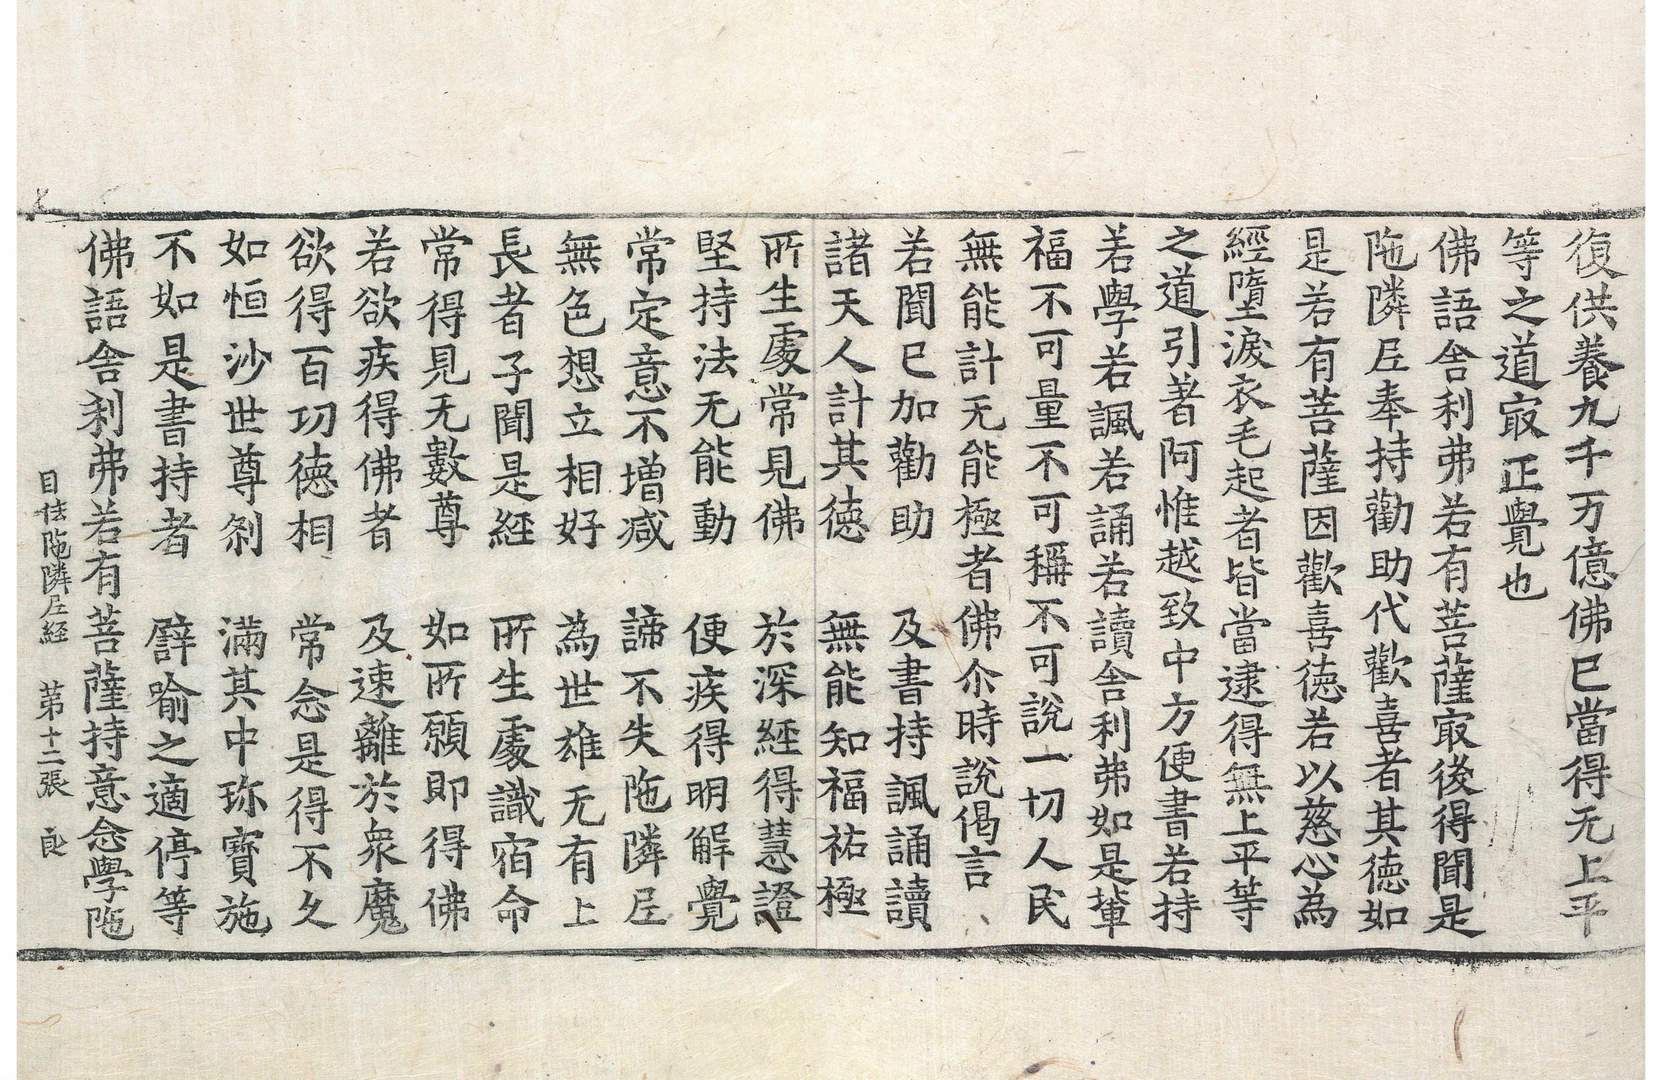 復供養九千万億佛已當得无上平
等之道㝡正覺也
佛語舍利弗若有菩薩㝡後得聞是
陁隣𡰱奉持勸助代歡喜者其德如
是若有菩薩因歡喜德若以慈心為
經墮淚衣毛起者皆當逮得無上平等
之道引著阿惟越致中方便書若持
若學若諷若誦若讀舍利弗如是輩
福不可量不可稱不可說一切人民
無能計无能極者佛尒時說偈言
若聞已加勸助　及書持諷誦讀
諸天人計其德　無能知福祐極
所生處常見佛　於深經得慧證
堅持法无能動　便疾得明解覺
常定意不增減　諦不失陁隣𡰱
無色想立相好　為世雄无有上
長者子聞是經　所生處識宿命
常得見无數尊　如所願即得佛
若欲疾得佛者　及速離於衆魔
欲得百功德相　常念是得不久
如恒沙世尊刹　滿其中珎寶施
不如是書持者　譬喻之適停等
佛語舍利弗若有菩薩持意念學陁
目佉陁隣𡰱経　第十二張　良